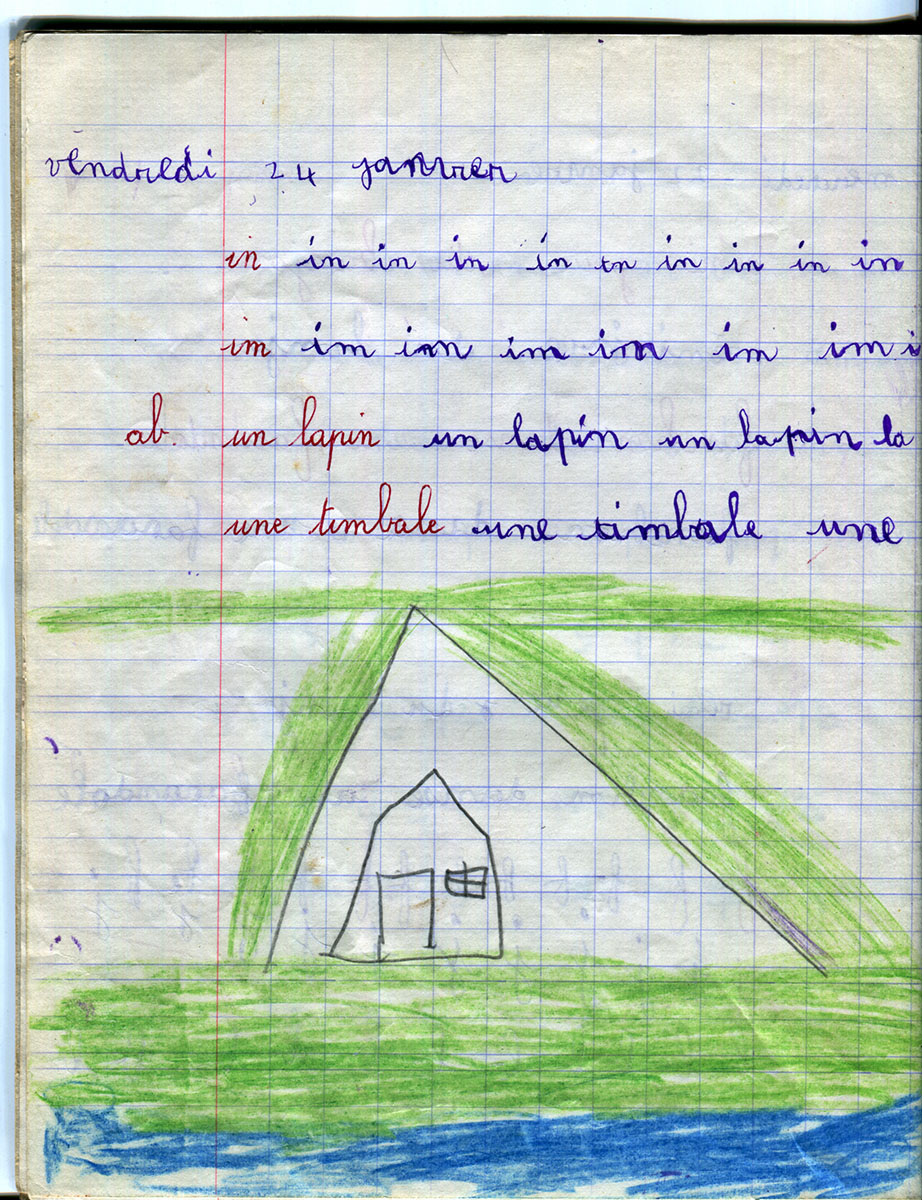 vendredi 24 janvier
in in in in in in in in in in
im im im im im im im i
ab. un lapin un lapin un lapin la
une timbale une timbale une